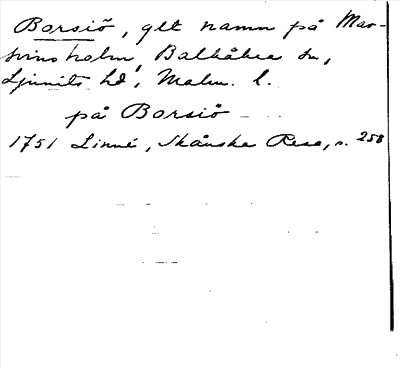 Borsiö, glt namn på Mar-
svinsholm, Balkåkra sn,
Ljunits hd, Malm. l.
på Borsiö
1751 Linné, Skånska Resa, s. 258